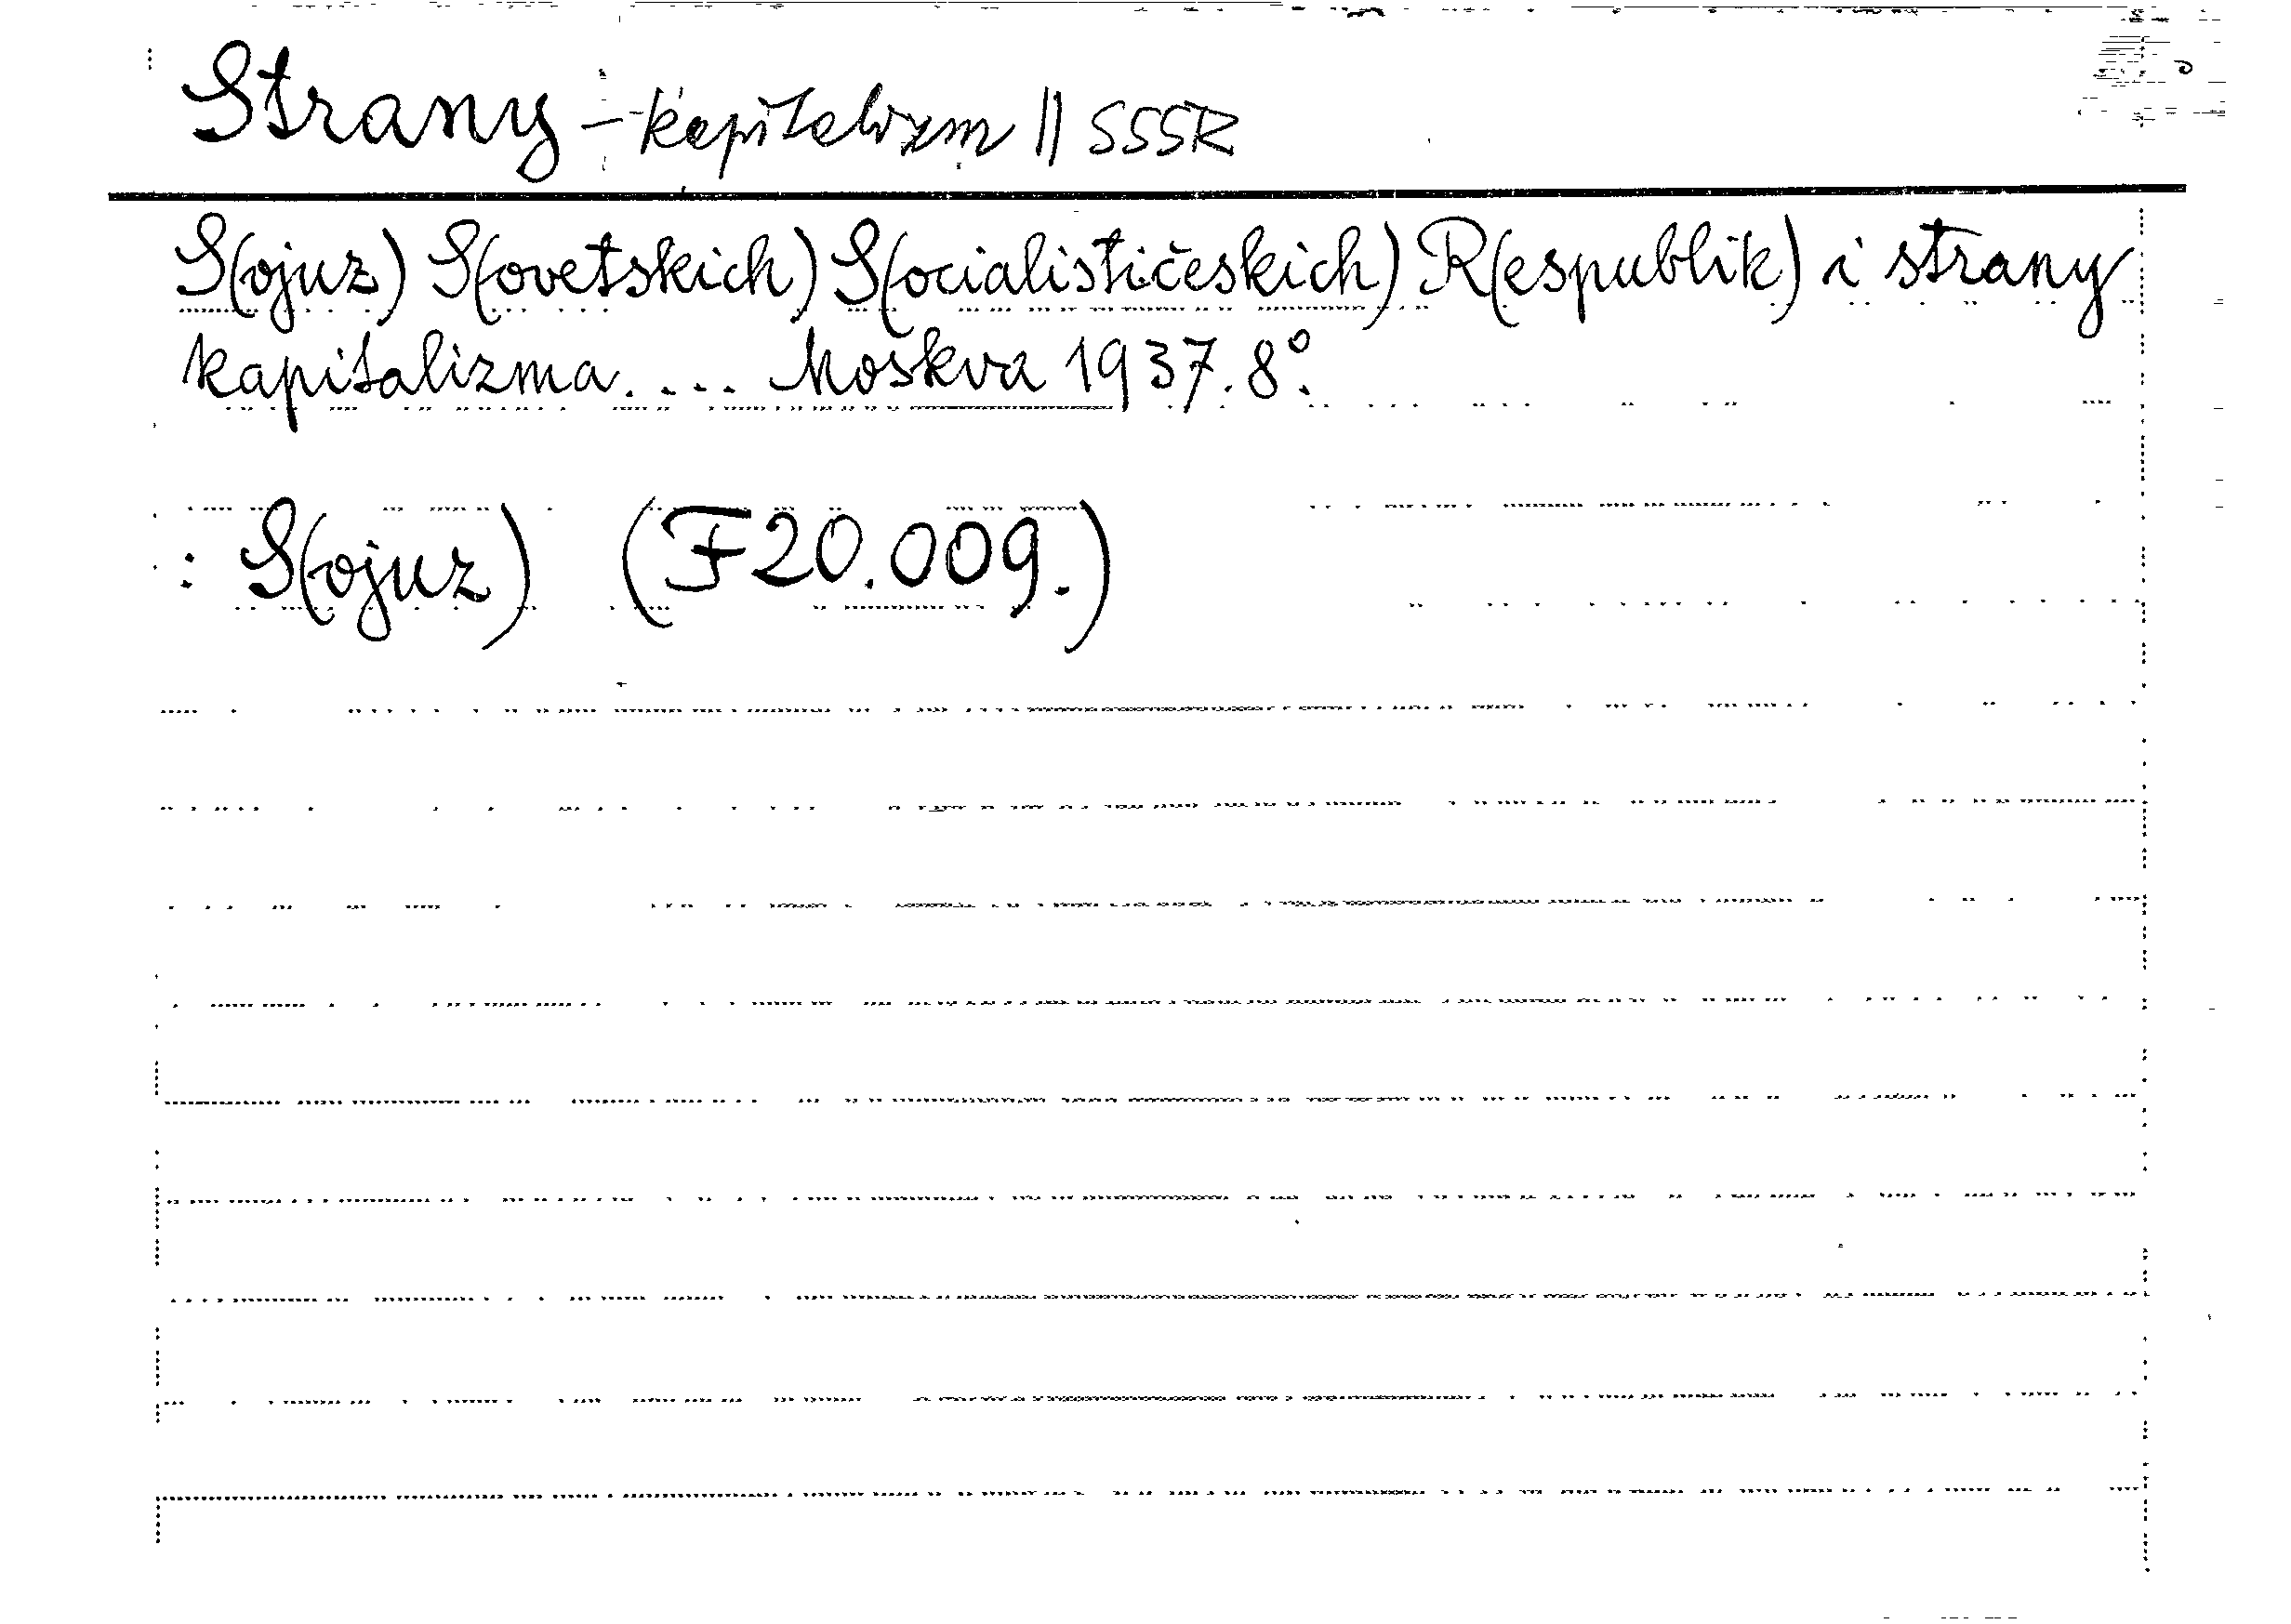 Strany - kapitalizm || SSSR
S(ojuz) S(ovetskich) S(ocialističeskich) R(espublik) i strany
kapitalizma. ... Moskva 1937. 8°.
: S(ojuz) (F20.009.)